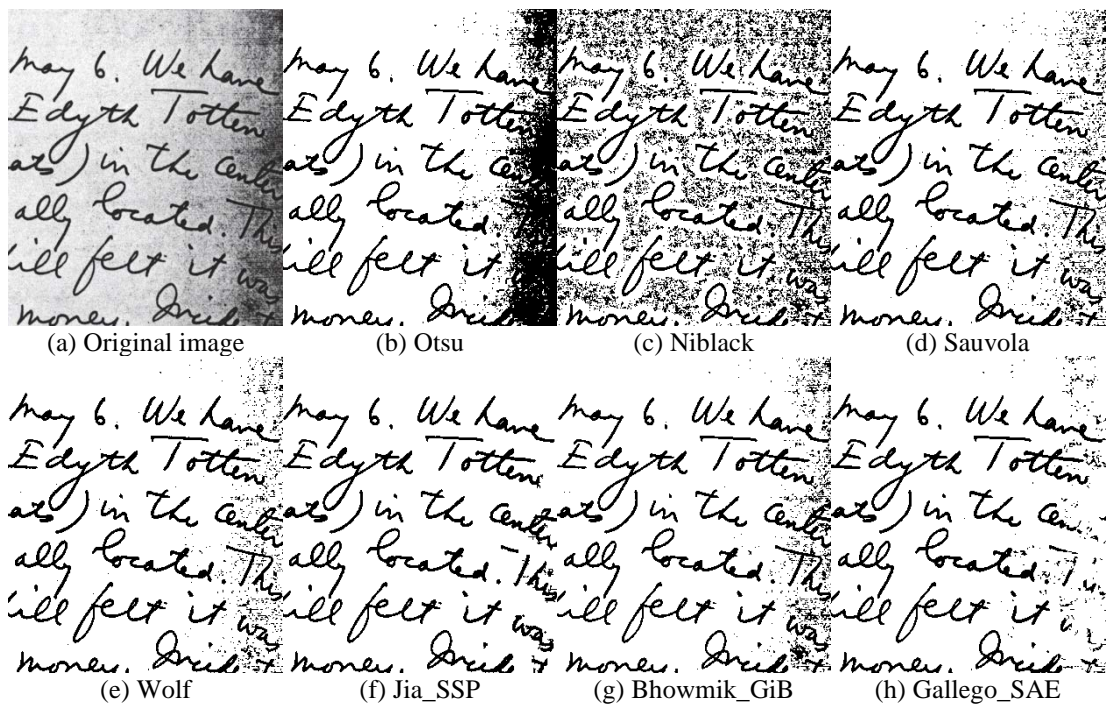 may 6. We have
Edyth Totten
ats) in the center
ally located. This
ill felt it was
money. Incident
(a) Original image
may 6. We have
Edyth Totten
ats) in the cen
ally located.
ill felt it
money. Incid
(b) Otsu
may 6. We have
Edyth Totten
ats) in the center
ally located. This
ill felt it was
money. Incident
(c) Niblack
may 6. We have
Edyth Totten
ats) in the center
ally located. This
ill felt it was
money. Incident
(d) Sauvola
may 6. We have
Edyth Totten
ats) in the center
ally located. This
ill felt it was
money. Incident
(e) Wolf
may 6. We have
Edyth Totten
ats) in the center
ally located. This
ill felt it was
money. Incident
(f) Jia_SSP
may 6. We have
Edyth Totten
ats) in the center
ally located. This
ill felt it was
money. Incident
(g) Bhowmik_GiB
may 6. We have
Edyth Totten
ats) in the cen
ally located.
ill felt it
money. Incid
(h) Gallego_SAE